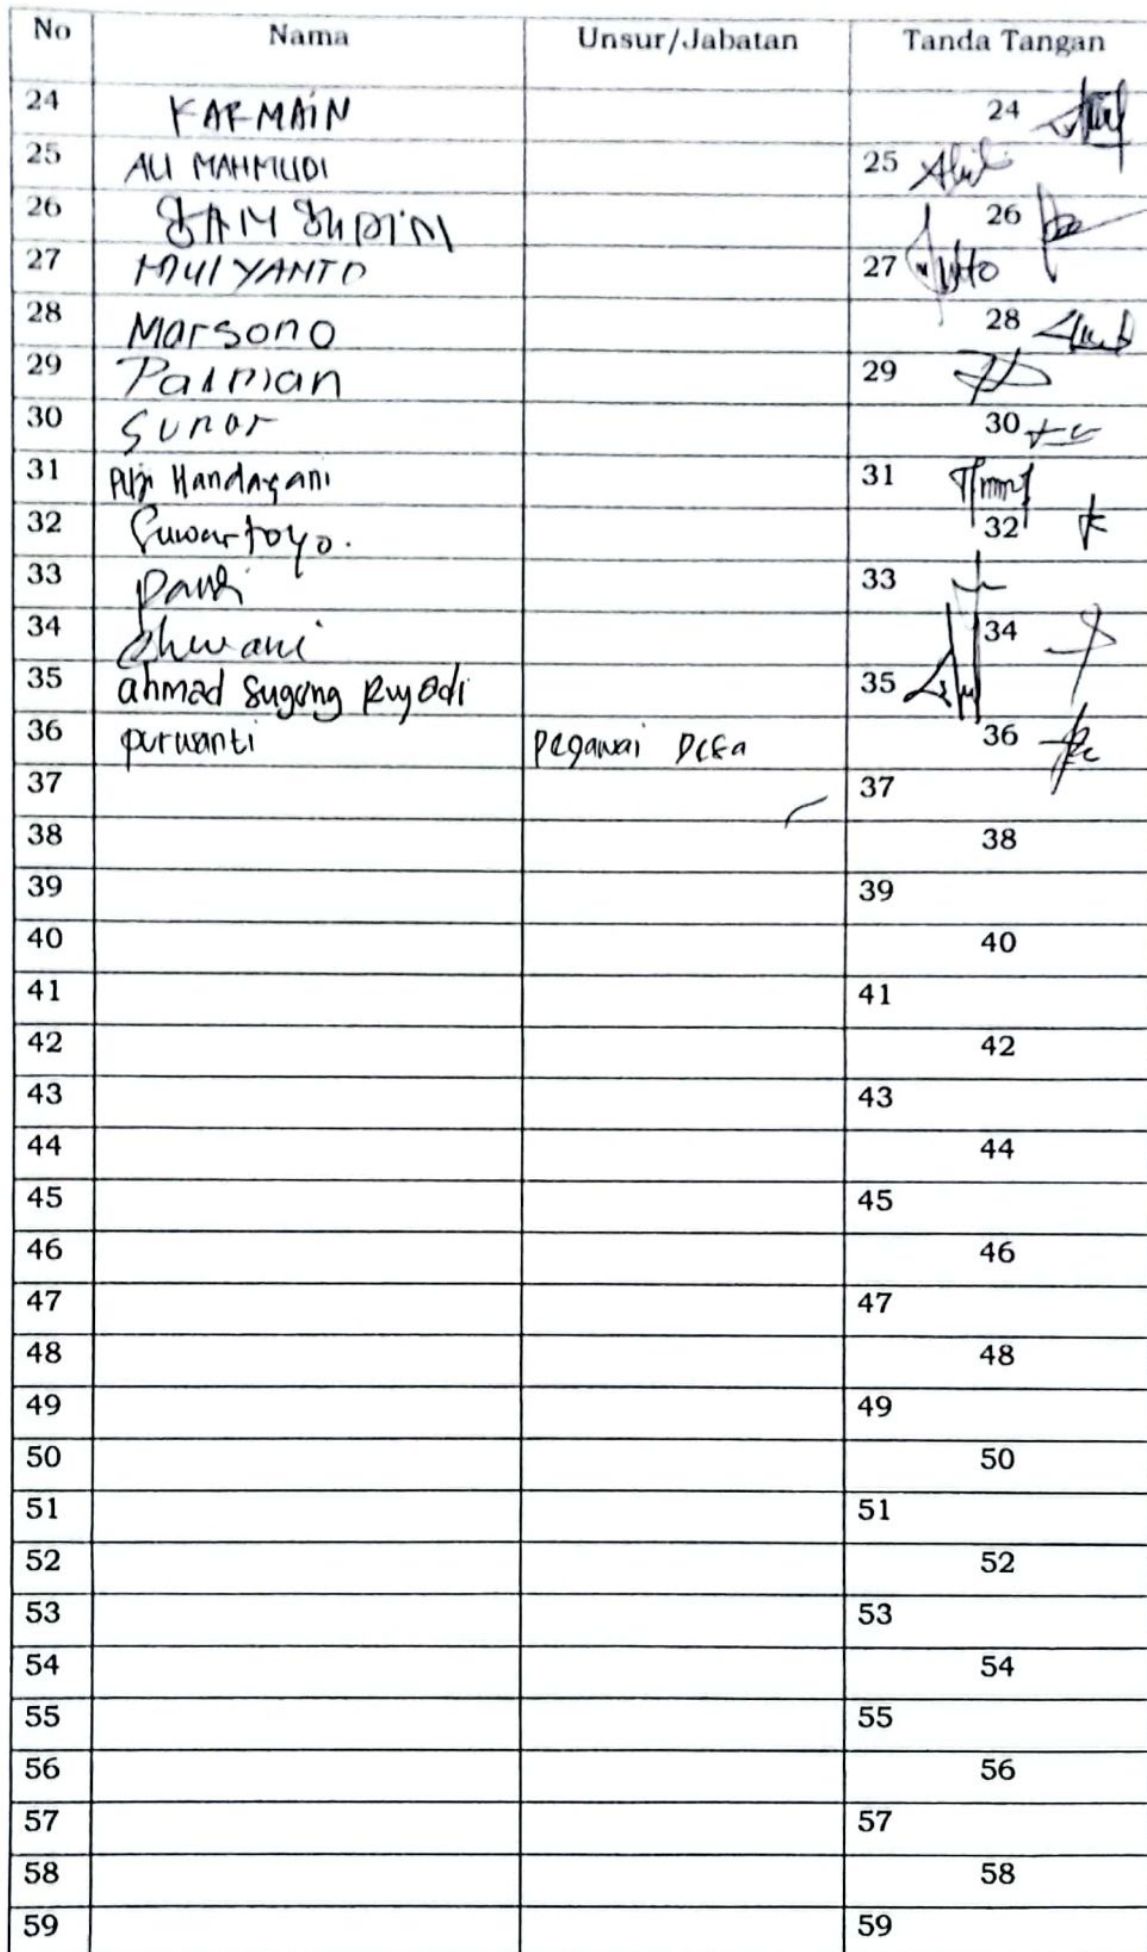 No Nama Unsur/Jabatan Tanda Tangan
24 KARMAIN 24
25 ALI MAHMUDI 25
26 SAMSUDIN 26
27 MULYANTO 27
28 Marsono 28
29 Parman 29
30 Sunar 30
31 Puji Handayani 31
32 Suwartoyo. 32
33 33
34 34
35 ahmad Sugeng 35
36 purwanti pegawai Desa 36
37 37
38 38
39 39
40 40
41 41
42 42
43 43
44 44
45 45
46 46
47 47
48 48
49 49
50 50
51 51
52 52
53 53
54 54
55 55
56 56
57 57
58 58
59 59